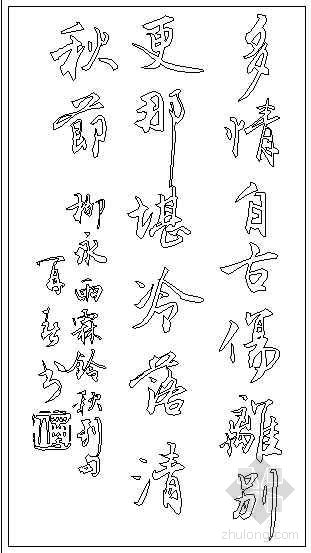 多情自古傷離別
更那堪冷落清
秋節
柳永雨霖鈴秋句
书
zhulong.com